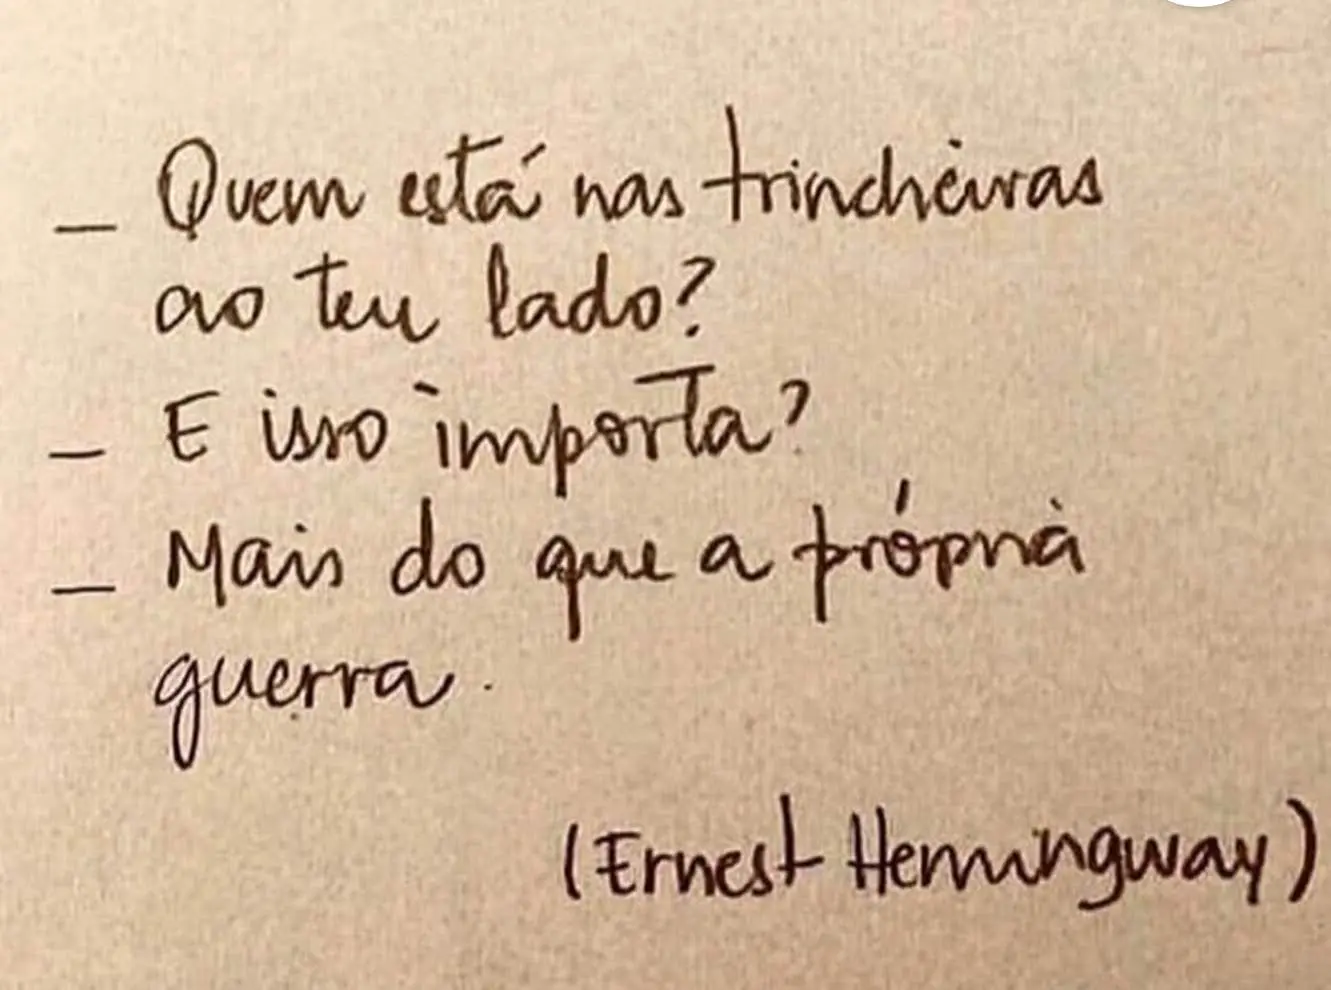 _ Quem está nas trincheiras
ao teu lado?
_ E isso importa?
_ Mais do que a própria
guerra.
(Ernest Hemingway)